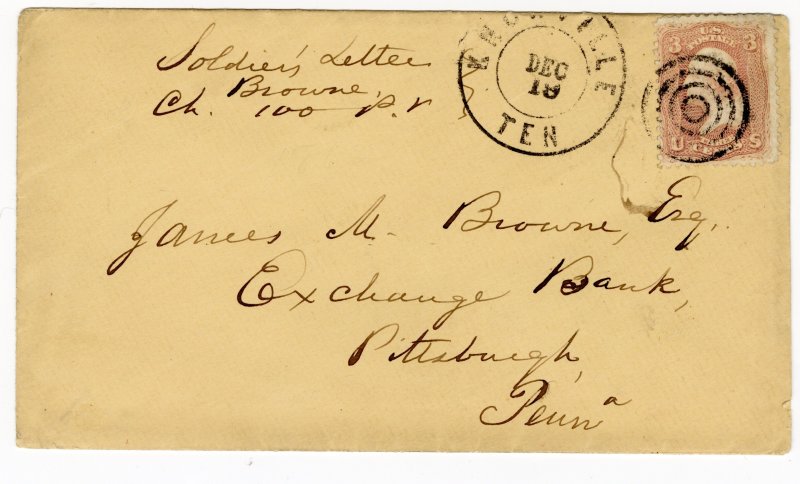 Soldier's Letter
Browne,
Ch. 100 P. V
KNOXVILLE
DEC
19
TEN
U.S.
POSTAGE
3 3
U S
CENTS
James M. Browne, Esq.
Exchange Bank,
Pittsburgh,
Penna